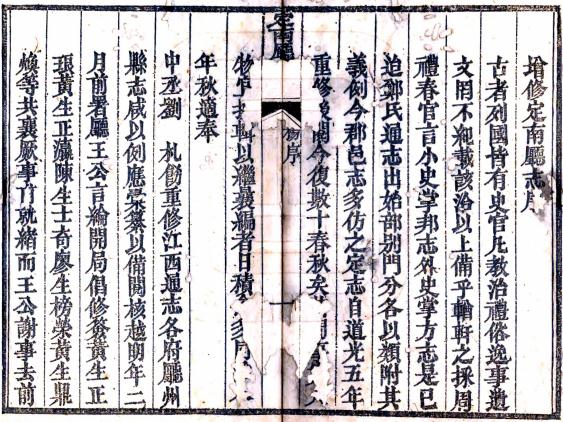 增修定南廳志序
古者列國皆有史官凡教治禮俗逸事遺
文罔不紀載該洽以上備乎輶軒之採周
禮春官言小史掌邦志外史掌方志是已
迨鄭氏通志出始部別門分各以類附其
義例今郡邑志多仿之定志自道光五年
重修後閱今復數十春秋矣
定南廳
物序
以繼曩編者日積
年秋適奉
中丞劉 札飭重修江西通志各府廳州
縣志咸以例應彙纂以備閱核越明年二
月前署廳王公言綸開局倡修僉黃生正
珢黃生正瀛陳生士奇廖生榜榮黃生鼎
煥等共襄厥事育就緒而王公謝事去前